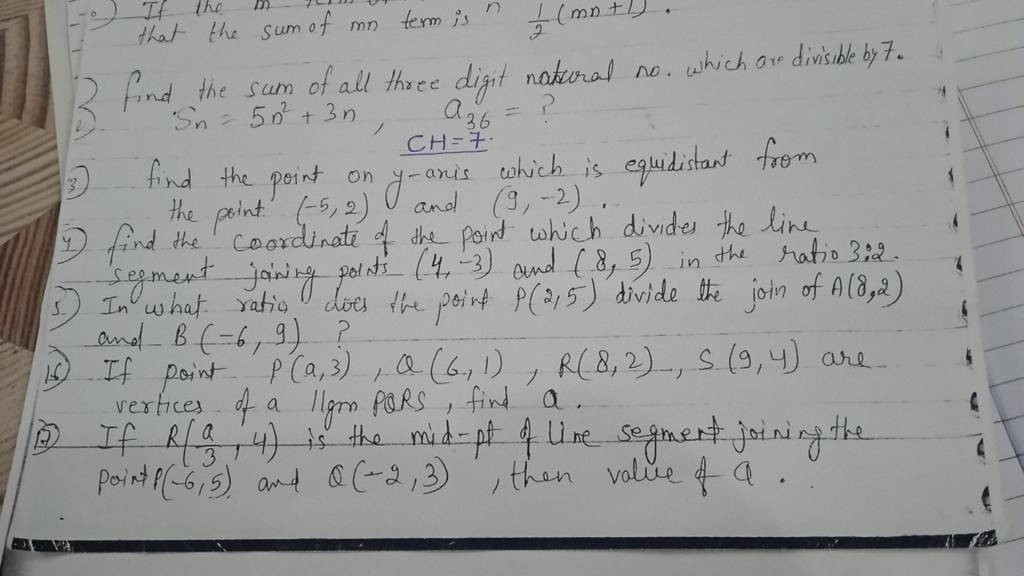 If the m term of n
that the sum of mn term is 1/2 (mn+1).
find the sum of all three digit natural no. which are divisible by 7.
Sn = 5n² + 3n , a₃₆ = ?
CH=7.
3) find the point on y-axis which is equidistant from
the point (-5, 2) and (9, -2).
4) find the coordinate of the point which divides the line
segment joining points (4, -3) and (8, 5) in the ratio 3:2.
5.) In what ratio does the point P(2,5) divide the join of A(8,2)
and B(-6, 9) ?
16) If point P(a,3) , Q(6,1) , R(8,2) , S(9,4) are
vertices of a llgm PQRS , find a.
17) If R(a/3, 4) is the mid-pt of line segment joining the
point P(-6,5) and Q(-2,3) , then value of a .